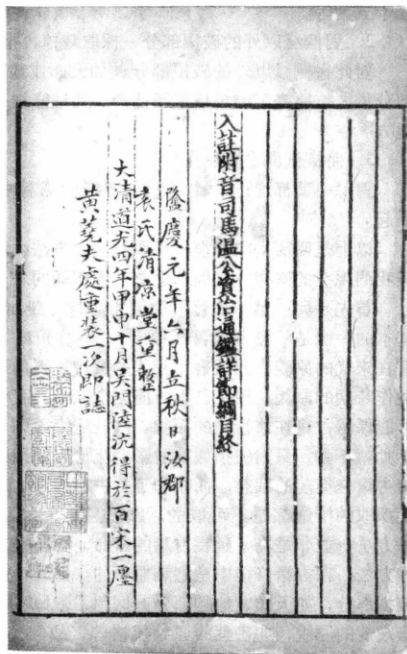 入註附音司馬溫公資治通鑑詳節綱目終
隆慶元年六月立秋日汝郡
袁氏清凉堂重整
大清道光四年甲申十月吳門陸沆得於百宋一廛
黄蕘夫處重裝一次即誌